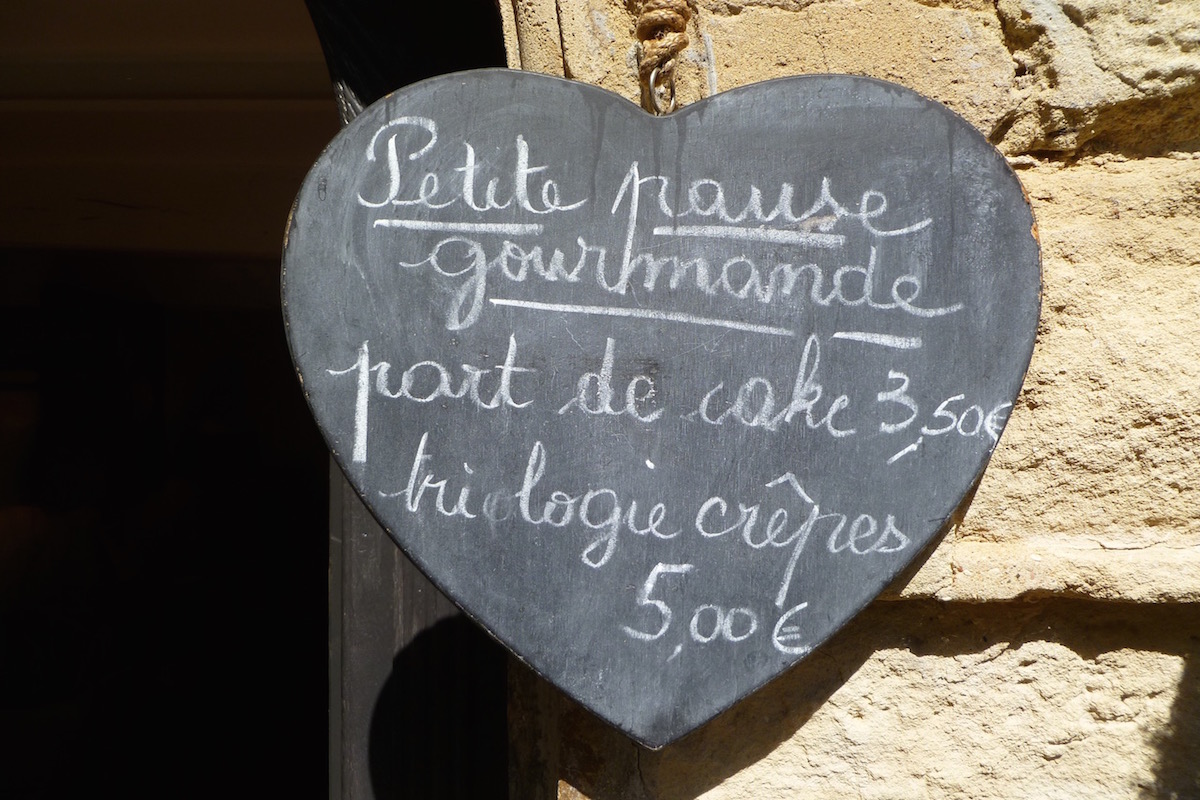 Petite pause
gourmande
part de cake 3,50€
triologie crêpes
5,00€